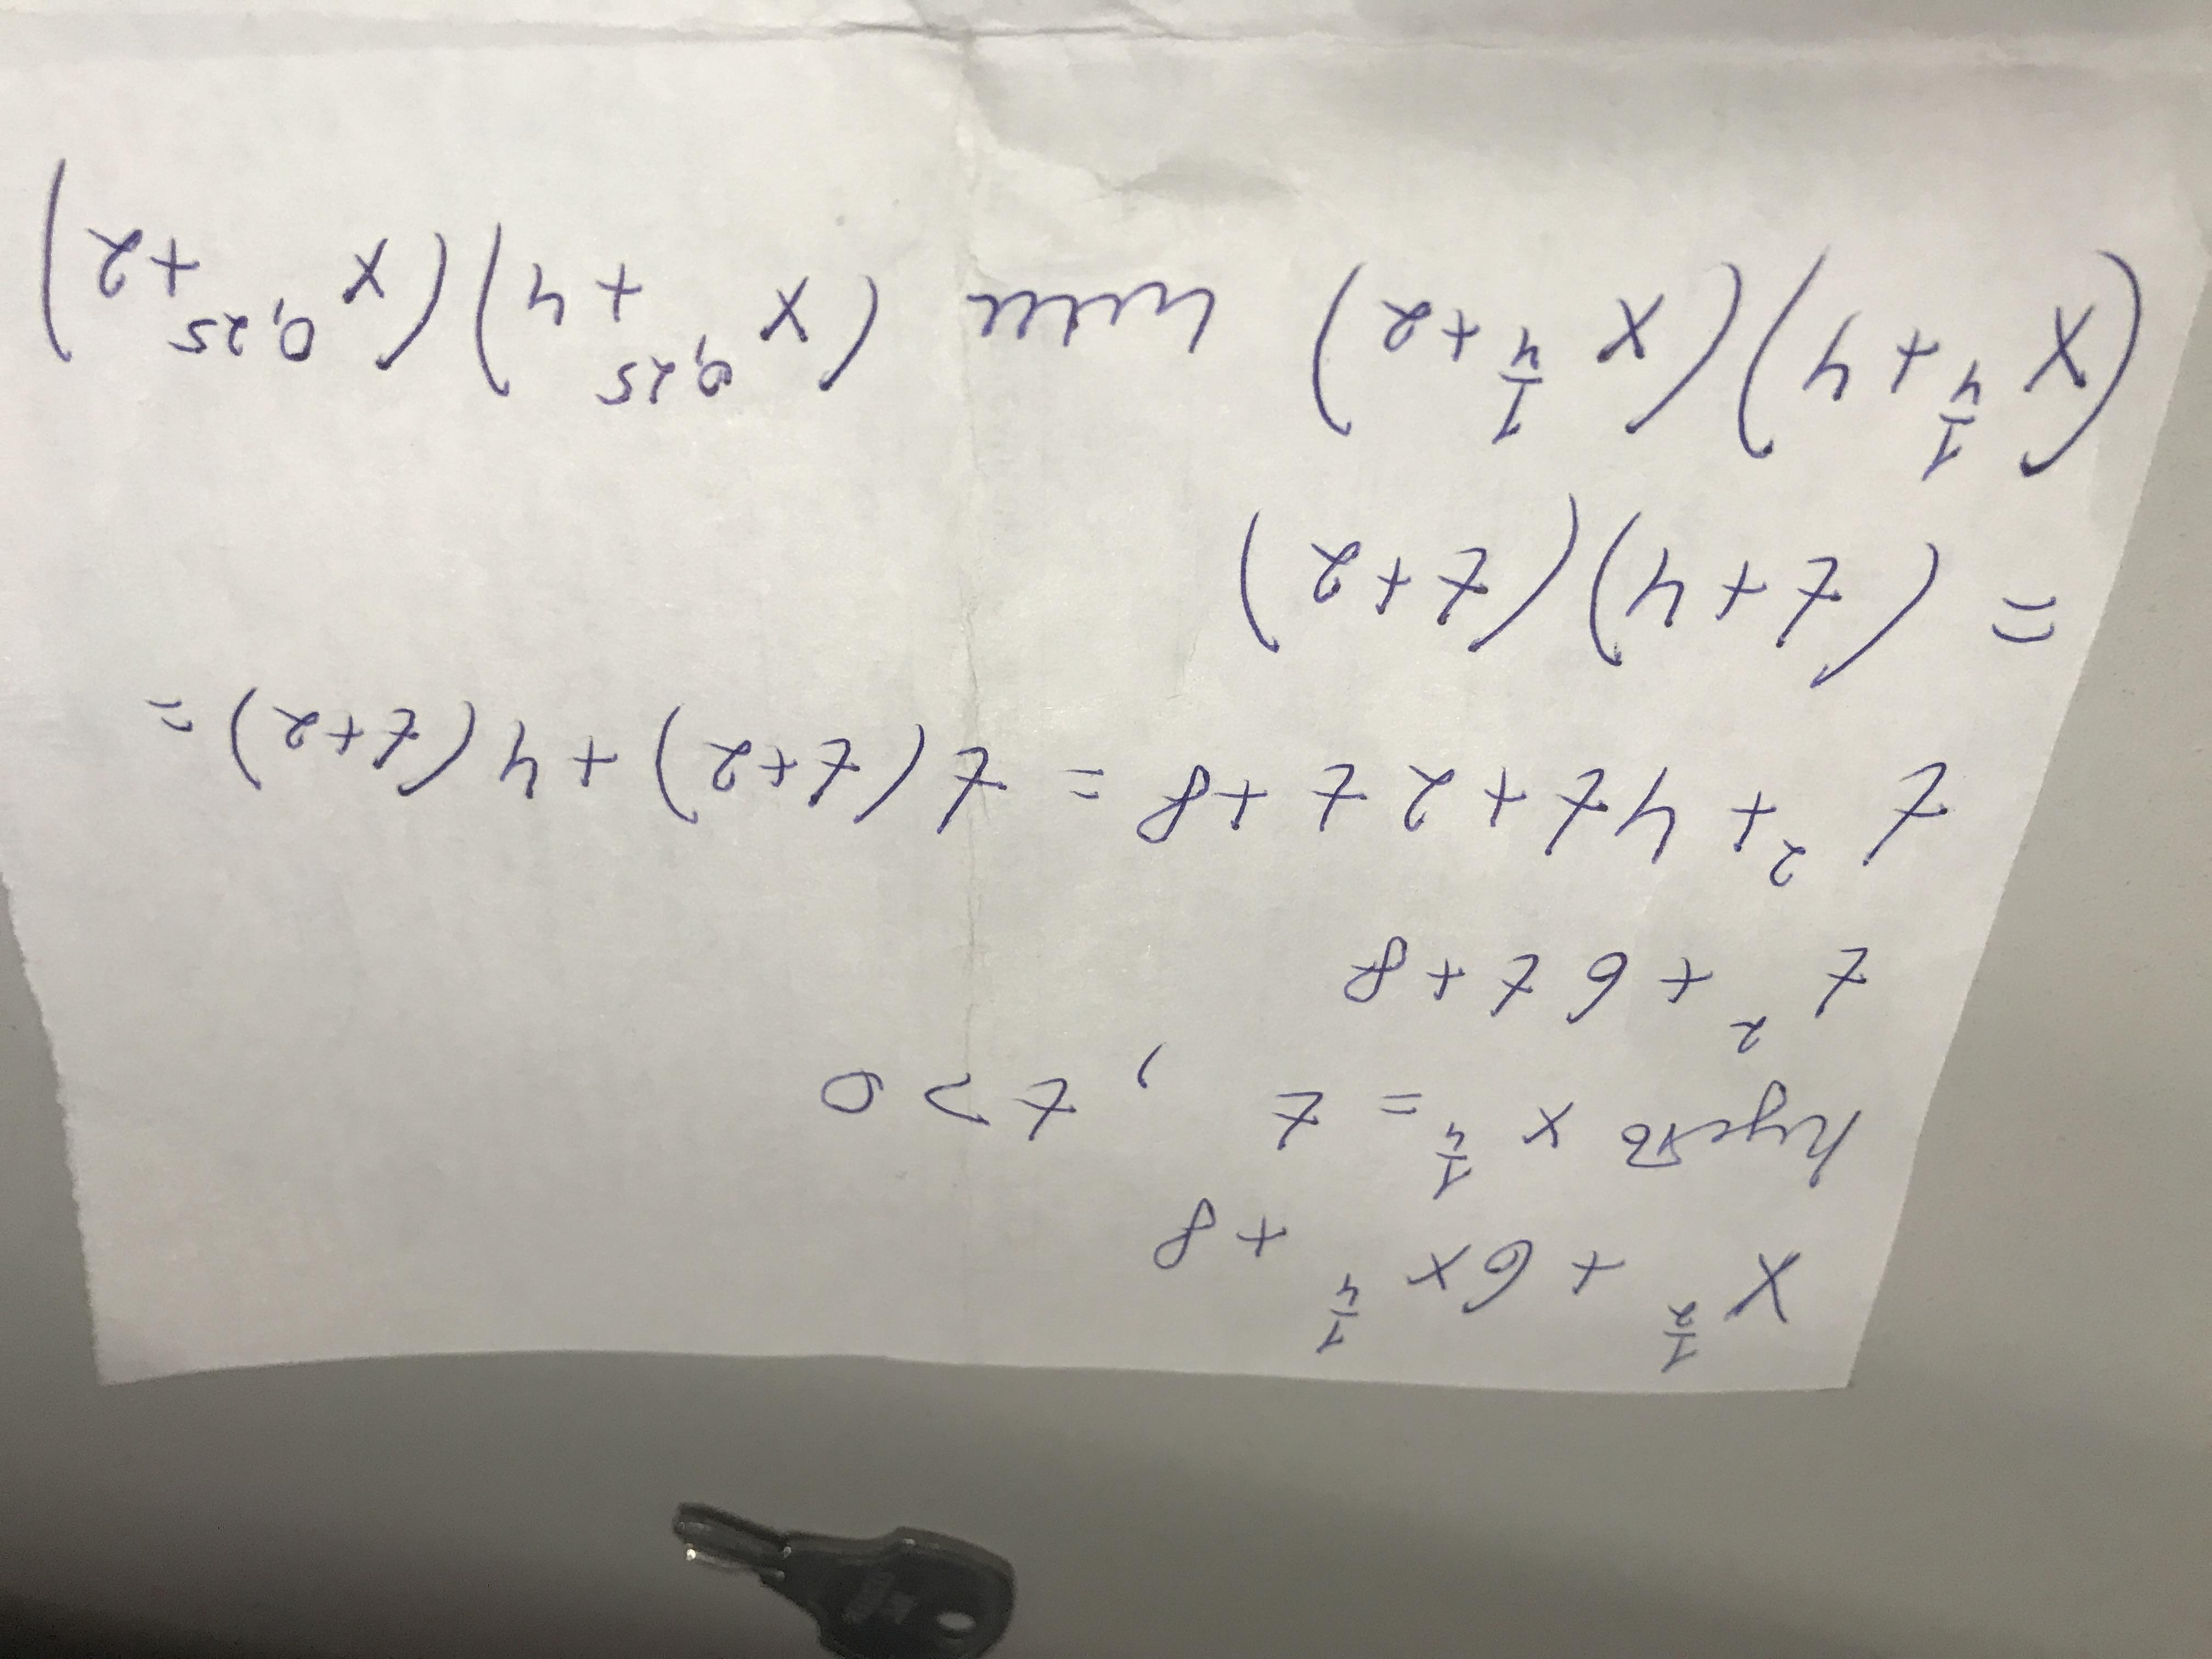 x^{1/2} + 6x^{1/4} + 8
пусть x^{1/4} = t , t > 0
t^2 + 6t + 8
t^2 + 4t + 2t + 8 = t(t+2) + 4(t+2) =
= (t+4)(t+2)
(x^{1/4} + 4)(x^{1/4} + 2) или (x^{0,25} + 4)(x^{0,25} + 2)